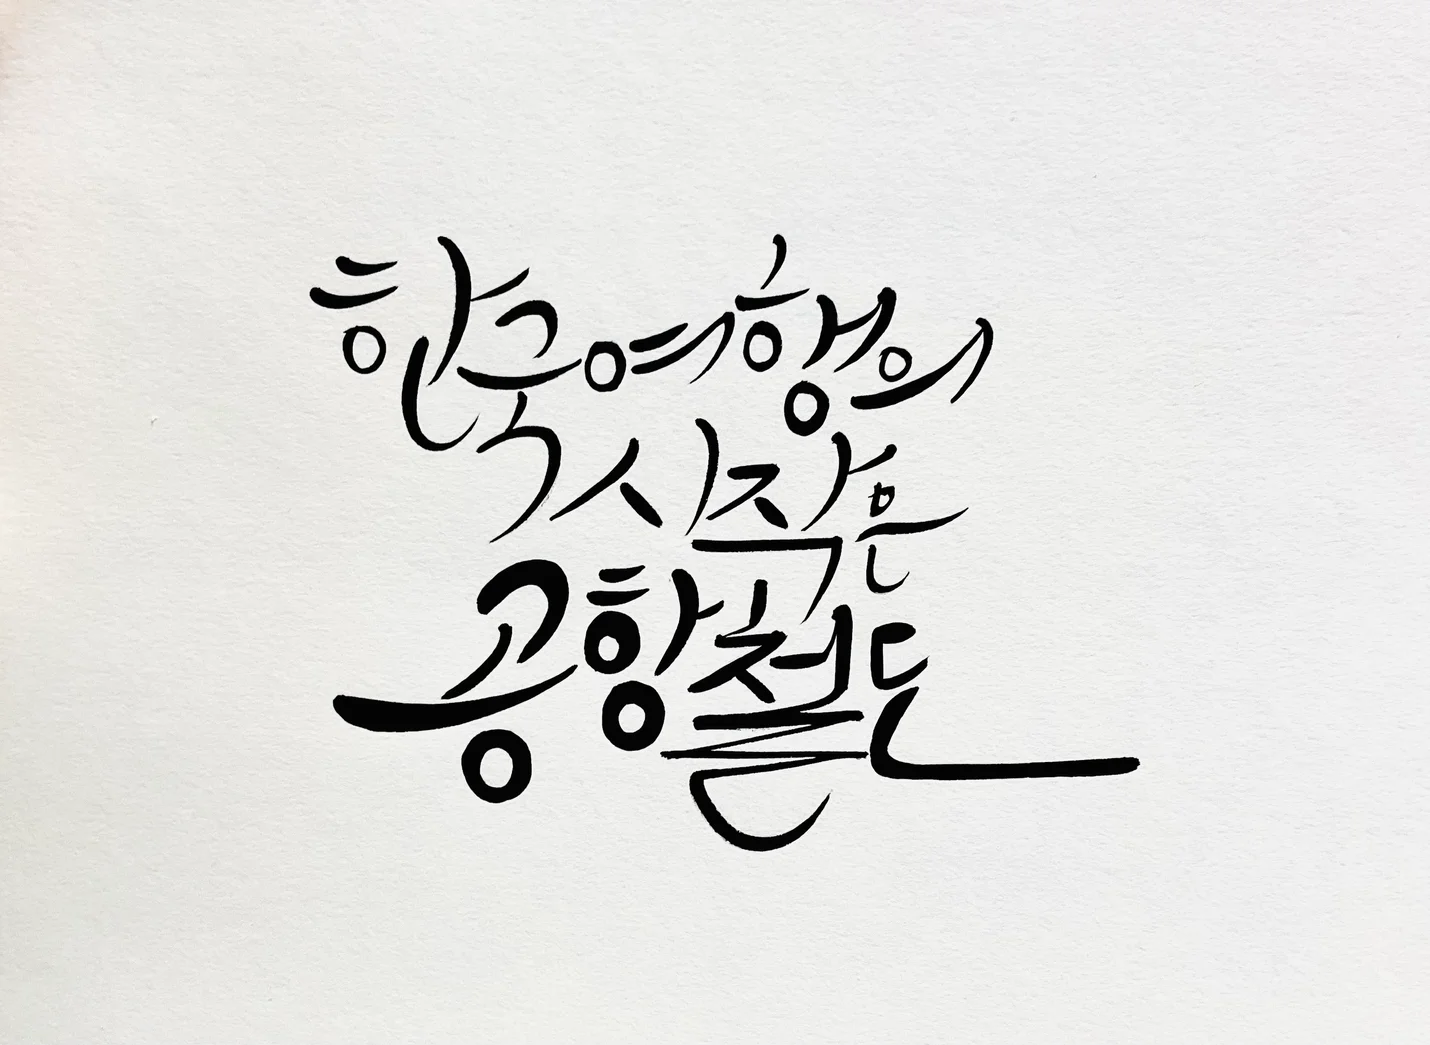 한국여행의
시작은
공항철도